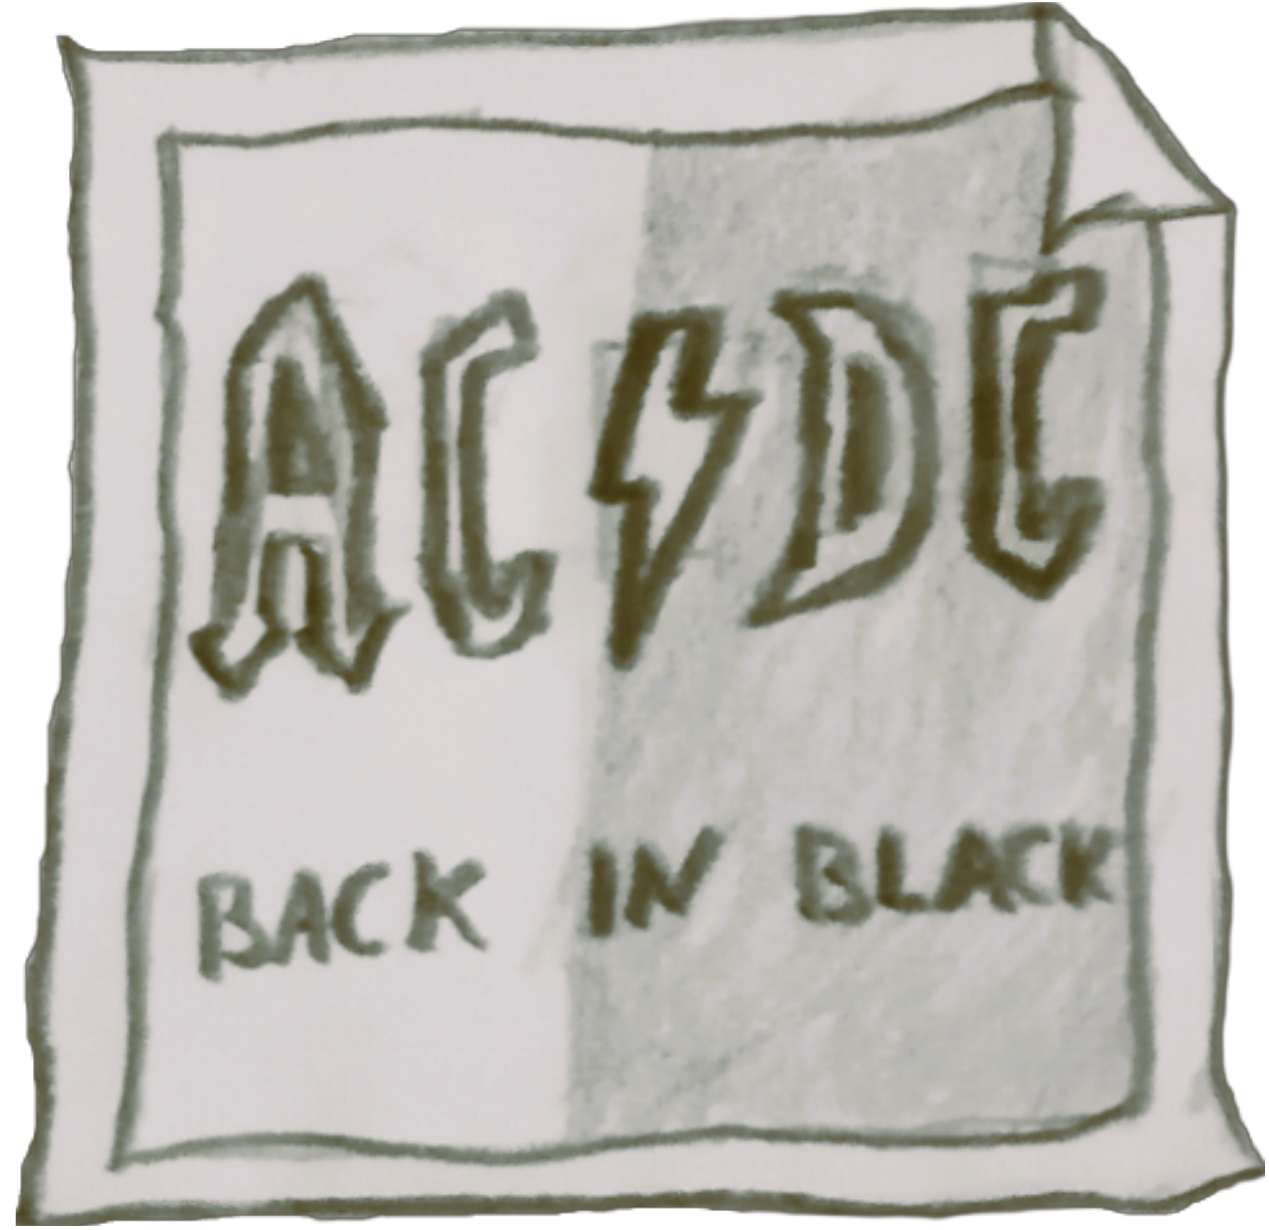 AC⚡DC
BACK IN BLACK